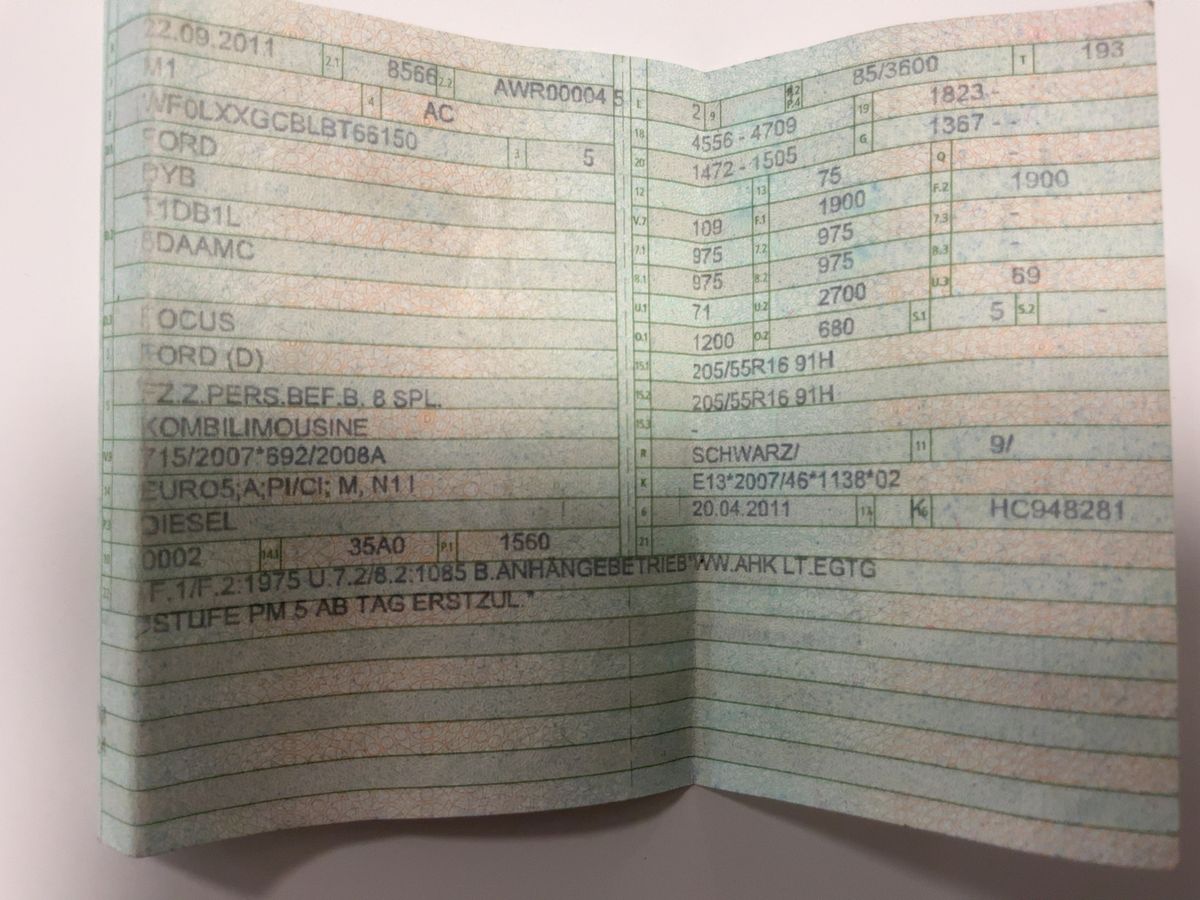 22.09.2011 2.1 8566 2.2 AWR00004 5
M1 4 AC
WF0LXXGCBLBT66150 3 5
FORD
DYB
11DB1L
5DAAMC
FOCUS
FORD (D)
FZ.Z.PERS.BEF.B. 8 SPL.
KOMBILIMOUSINE
715/2007*692/2008A
EURO5;A;PI/CI; M, N1 I
DIESEL
0002 14.1 35A0 P.1 1560
F.1/F.2:1975 U.7.2/8.2:1085 B.ANHÄNGEBETRIEB*WW.AHK LT.EGTG
STUFE PM 5 AB TAG ERSTZUL.*
L 2 9 P.2 P.4 85/3600 T 193
18 4556 - 4709 19 1823 -
20 1472 - 1505 G 1367 - -
12 13 75 Q -
V.7 109 F.1 1900 F.2 1900
7.1 975 7.2 975 7.3 -
8.1 975 8.2 975 8.3 -
U.1 71 U.2 2700 U.3 69
O.1 1200 O.2 680 S.1 5 S.2 -
15.1 205/55R16 91H
15.2 205/55R16 91H
15.3 -
R SCHWARZ/ 11 9/
K E13*2007/46*1138*02
6 20.04.2011 17 K 16 HC948281
21